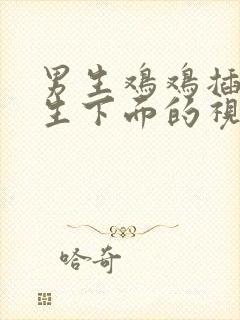 男生鸡鸡插
生下而的视
哈奇